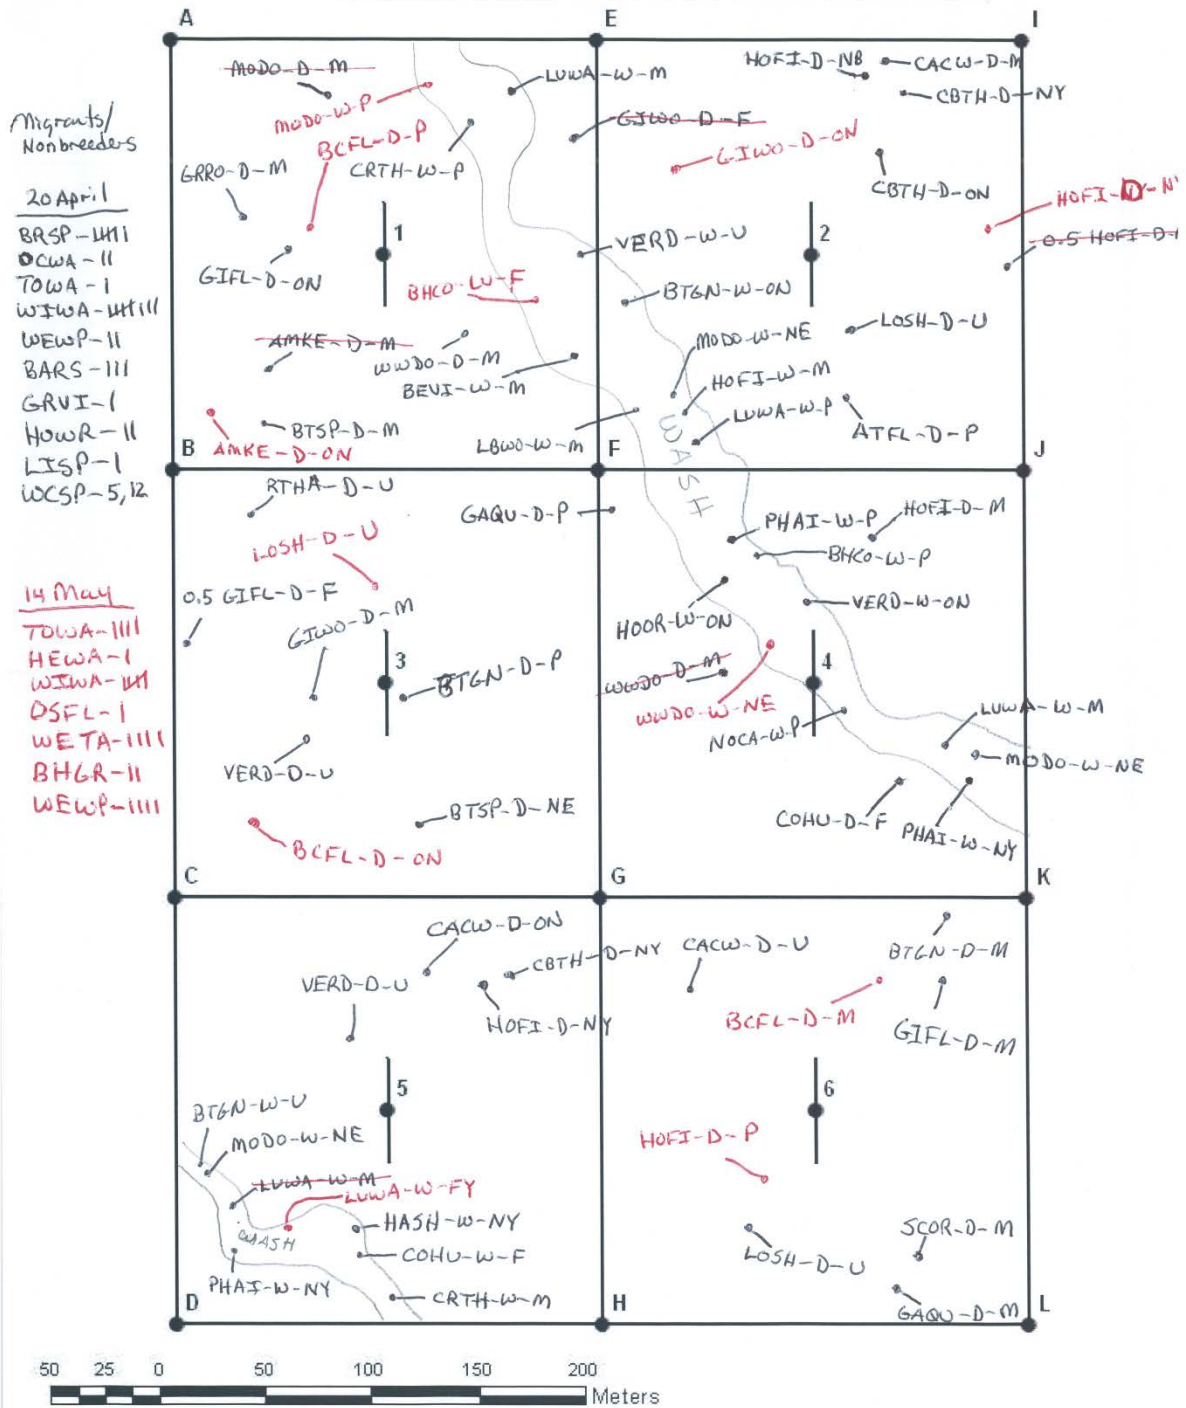 A
E
I
Migrants/
Nonbreeders
20 April
BRSP-IIIII
OCWA-II
TOWA-I
WIWA-IIIIIIII
WEWP-II
BARS-III
GRVI-I
HOWR-II
LISP-I
WCSP-5,12
14 May
TOWA-IIII
HEWA-I
WIWA-IIIII
OSFL-I
WETA-IIII
BHGR-II
WEWP-IIII
MODO-D-M
MODO-W-P
BCFL-D-P
GRRO-D-M
CRTH-W-P
LUWA-W-M
GIWO-D-F
1
GIFL-D-ON
VERD-W-U
BHCO-W-F
BTGN-W-ON
AMKE-D-M
WWDO-D-M
BEVI-W-M
BTSP-D-M
AMKE-D-ON
LBWO-W-M
HOFI-D-NB
CACW-D-M
CBTH-D-NY
GIWO-D-ON
CBTH-D-ON
HOFI-D-N
0.5 HOFI-D-
2
LOSH-D-U
MODO-W-NE
HOFI-W-M
LUWA-W-P
ATFL-D-P
WASH
B
F
J
RTHA-D-U
LOSH-D-U
GAQU-D-P
0.5 GIFL-D-F
GIWO-D-M
3
BTGN-D-P
VERD-D-U
BTSP-D-NE
BCFL-D-ON
PHAI-W-P
HOFI-D-M
BHCO-W-P
HOOR-W-ON
VERD-W-ON
WWDO-D-M
WWDO-W-NE
4
NOCA-W-P
LUWA-W-M
MODO-W-NE
COHU-D-F
PHAI-W-NY
C
G
K
CACW-D-ON
CBTH-D-NY
VERD-D-U
HOFI-D-NY
5
BTGN-W-U
MODO-W-NE
LUWA-W-M
LUWA-W-FY
WASH
HASH-W-NY
COHU-W-F
PHAI-W-NY
CRTH-W-M
CACW-D-U
BTGN-D-M
BCFL-D-M
GIFL-D-M
6
HOFI-D-P
LOSH-D-U
SCOR-D-M
GAQU-D-M
D
H
L
50 25 0 50 100 150 200
Meters